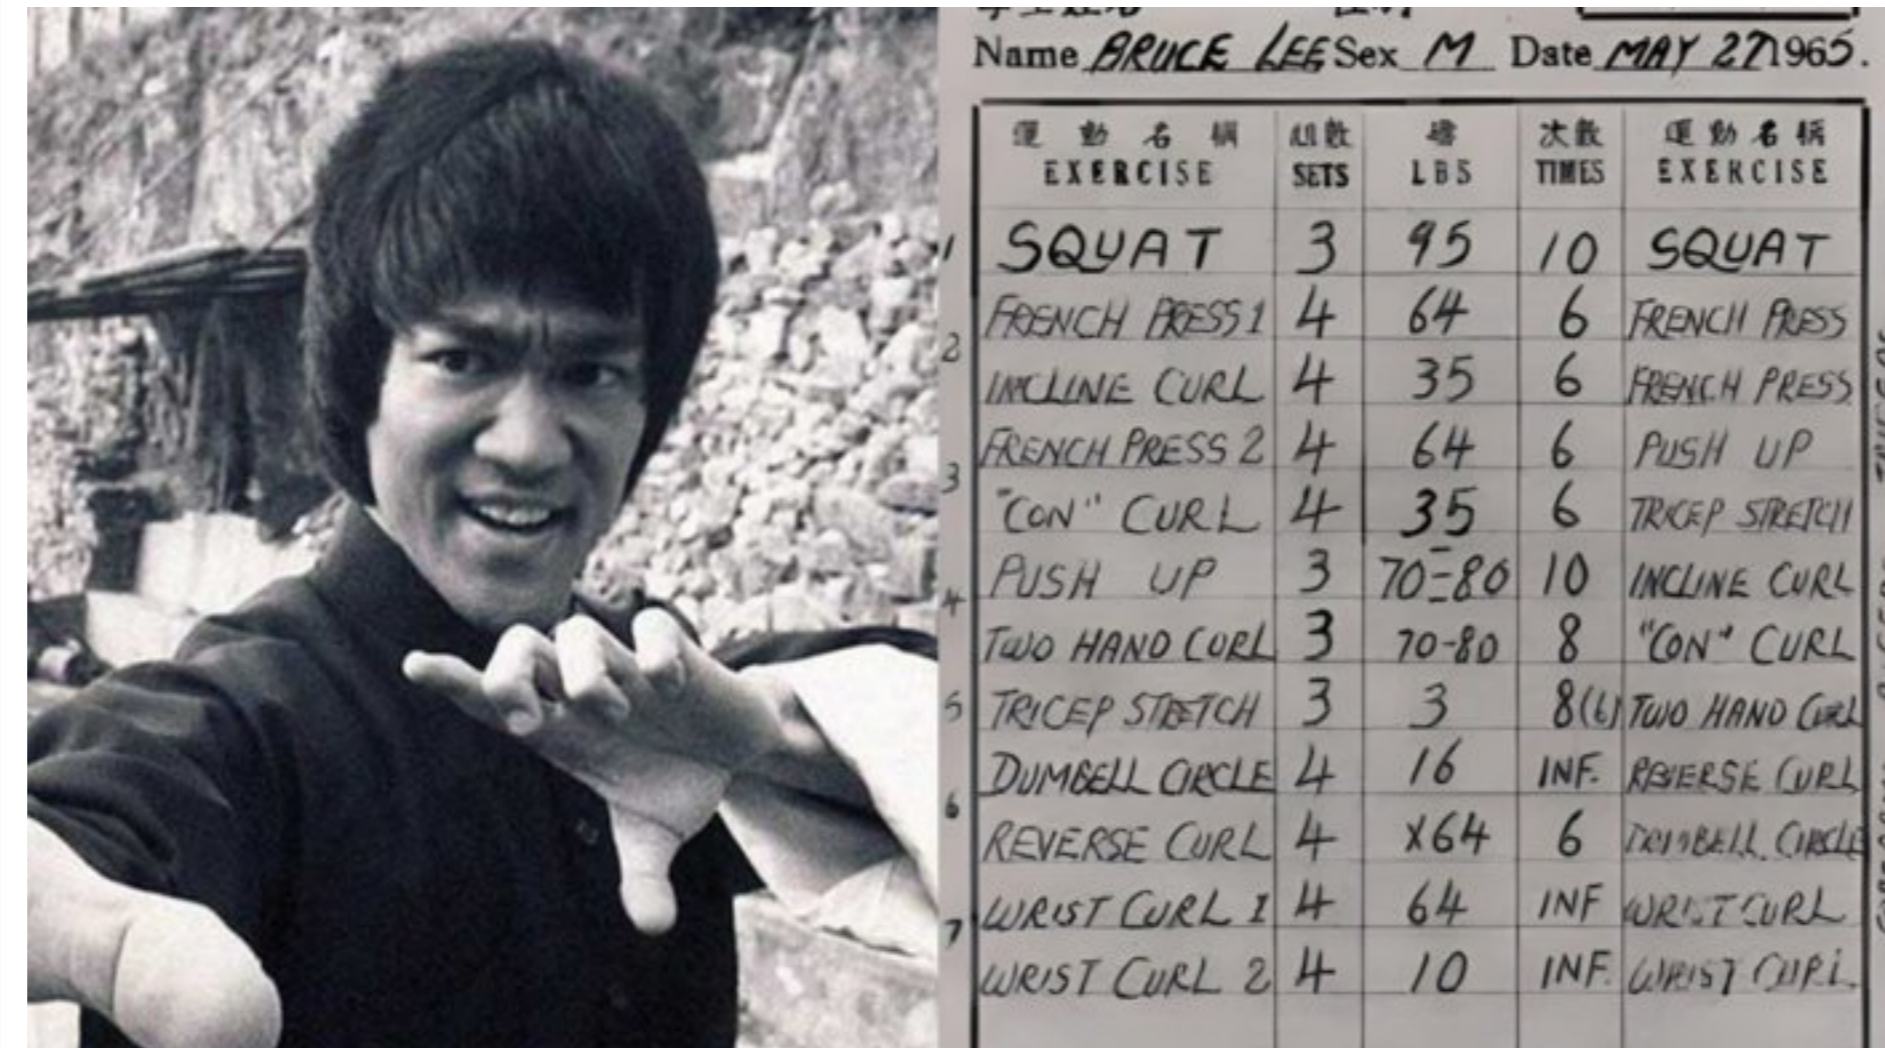 Name BRUCE LEE Sex M Date MAY 27 1965.
運動名稱 組數 磅 次數 運動名稱
EXERCISE SETS LBS TIMES EXERCISE
1 SQUAT 3 95 10 SQUAT
FRENCH PRESS 1 4 64 6 FRENCH PRESS
2 INCLINE CURL 4 35 6 FRENCH PRESS
FRENCH PRESS 2 4 64 6 PUSH UP
3 "CON" CURL 4 35 6 TRICEP STRETCH
PUSH UP 3 70-80 10 INCLINE CURL
4 TWO HAND CURL 3 70-80 8 "CON" CURL
5 TRICEP STRETCH 3 3 8(6) TWO HAND CURL
DUMBELL CIRCLE 4 16 INF. REVERSE CURL
6 REVERSE CURL 4 X64 6 DUMBELL CIRCLE
WRIST CURL 1 4 64 INF WRIST CURL
7 WRIST CURL 2 4 10 INF. WRIST CURL